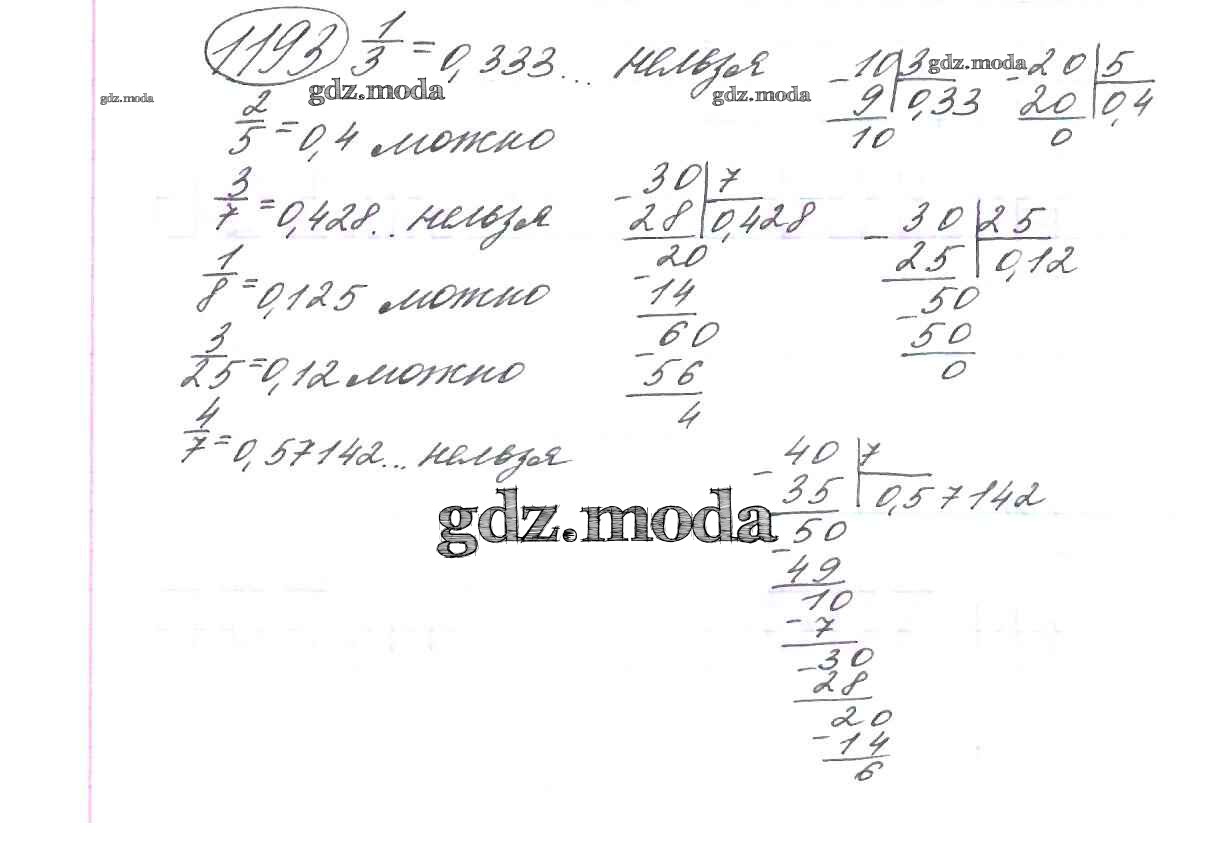 1193 1/3 = 0,333... нельзя
2/5 = 0,4 можно
3/7 = 0,428... нельзя
1/8 = 0,125 можно
3/25 = 0,12 можно
4/7 = 0,57142... нельзя
- 10 | 3
9 | 0,33
10
- 20 | 5
20 | 0,4
0
- 30 | 7
28 | 0,428
20
- 14
60
- 56
4
- 30 | 25
25 | 0,12
- 50
50
0
- 40 | 7
35 | 0,57142
- 50
49
10
- 7
- 30
28
20
- 14
6
gdz.moda
gdz.moda
gdz.moda
gdz.moda
gdz.moda